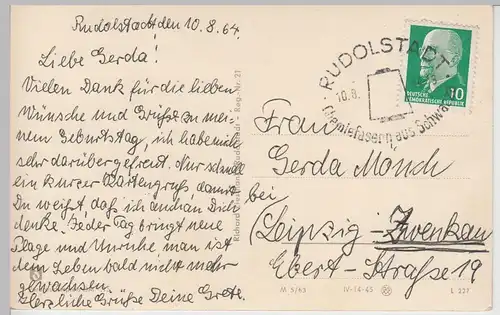 Rudolstadt den 10.8.64.
Liebe Gerda!
Vielen Dank für die lieben
Wünsche und Grüße zu mei-
nem Geburtstag, ich habe mich
sehr darüber gefreut. Nur schnell
ein kurzer Kartengruß, damit
Du weißt daß ich auch an Dich
denke. Jeder Tag bringt neue
Plage und Unruhe man ist
dem Leben bald nicht mehr
gewachsen.
Herzliche Grüße Deine Grete.
RUDOLSTADT
10.8.
Chemiefasern aus Schwa
10
DEUTSCHE
DEMOKRATISCHE REPUBLIK
Frau
Gerda Mönch
bei
(Leipzig - Zwenkau
Ebert-Straße 19
Reg.-Nr. 21
M 5/63 IV-14-45 L 227